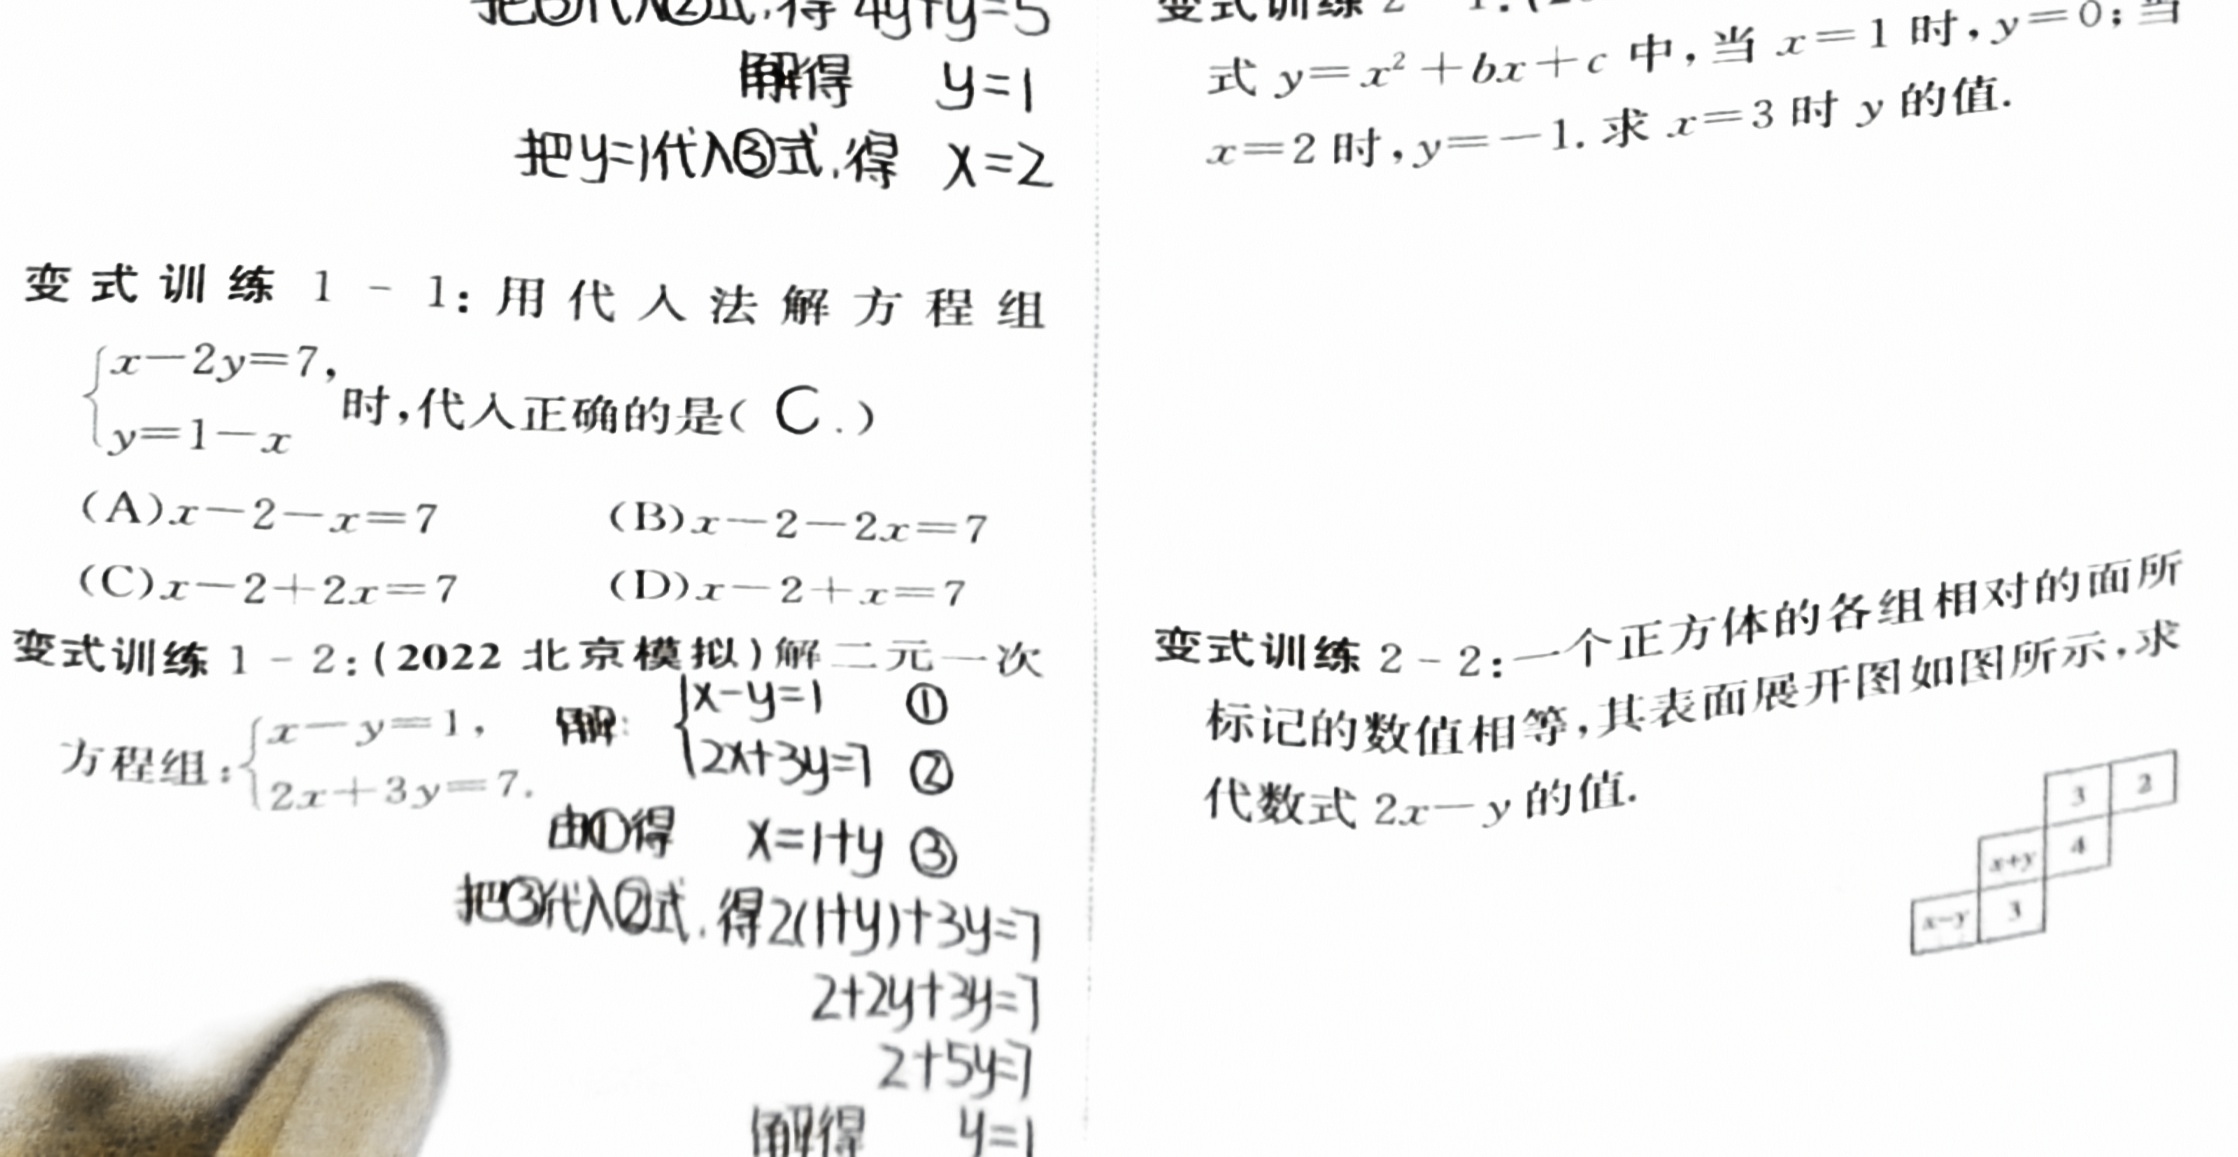 把③代入②式,得 4y+y=5
解得 y=1
把y=1代入③式,得 x=2
变式训练 1-1:用代入法解方程组
{x-2y=7,
y=1-x
时,代入正确的是( C. )
(A)x-2-x=7 (B)x-2-2x=7
(C)x-2+2x=7 (D)x-2+x=7
变式训练 1-2:(2022 北京模拟)解二元一次
方程组:{x-y=1,
2x+3y=7.
解: {x-y=1 ①
2x+3y=7 ②
由①得 x=1+y ③
把③代入②式,得2(1+y)+3y=7
2+2y+3y=7
2+5y=7
解得 y=1
变式训练 2-1:
式 y=x²+bx+c 中,当 x=1 时,y=0;当
x=2 时,y=-1. 求 x=3 时 y 的值.
变式训练 2-2:一个正方体的各组相对的面所
标记的数值相等,其表面展开图如图所示,求
代数式 2x-y 的值.
3 2
x+y 4
x-y 3